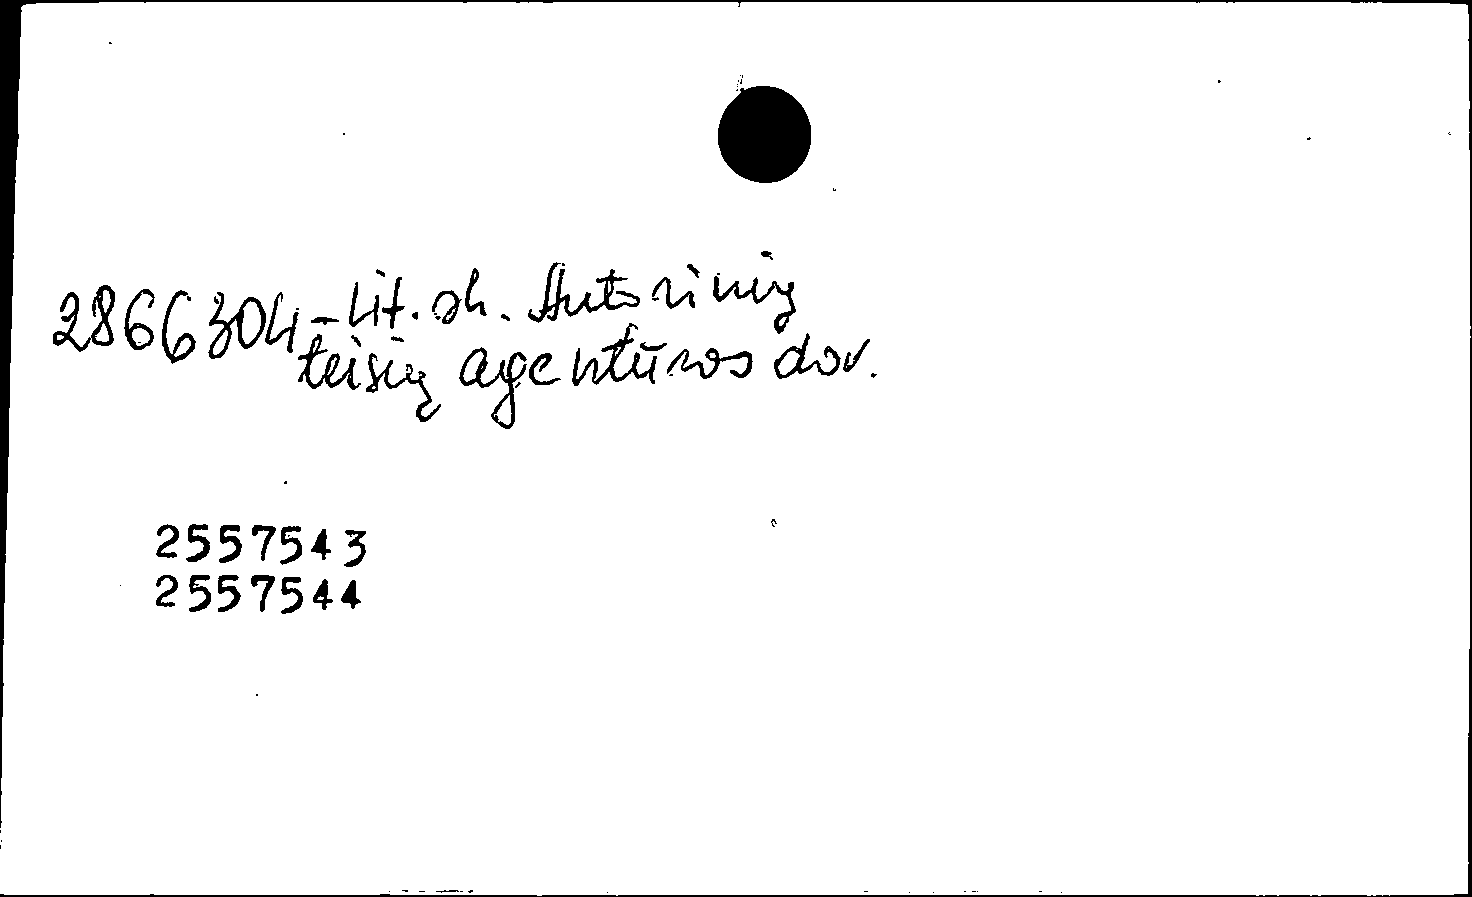 2866304-Lit. sk. Autorinių
teisių agentūros dov.
2557543
2557544